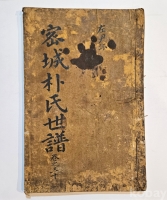 密城朴氏世譜
卷之十